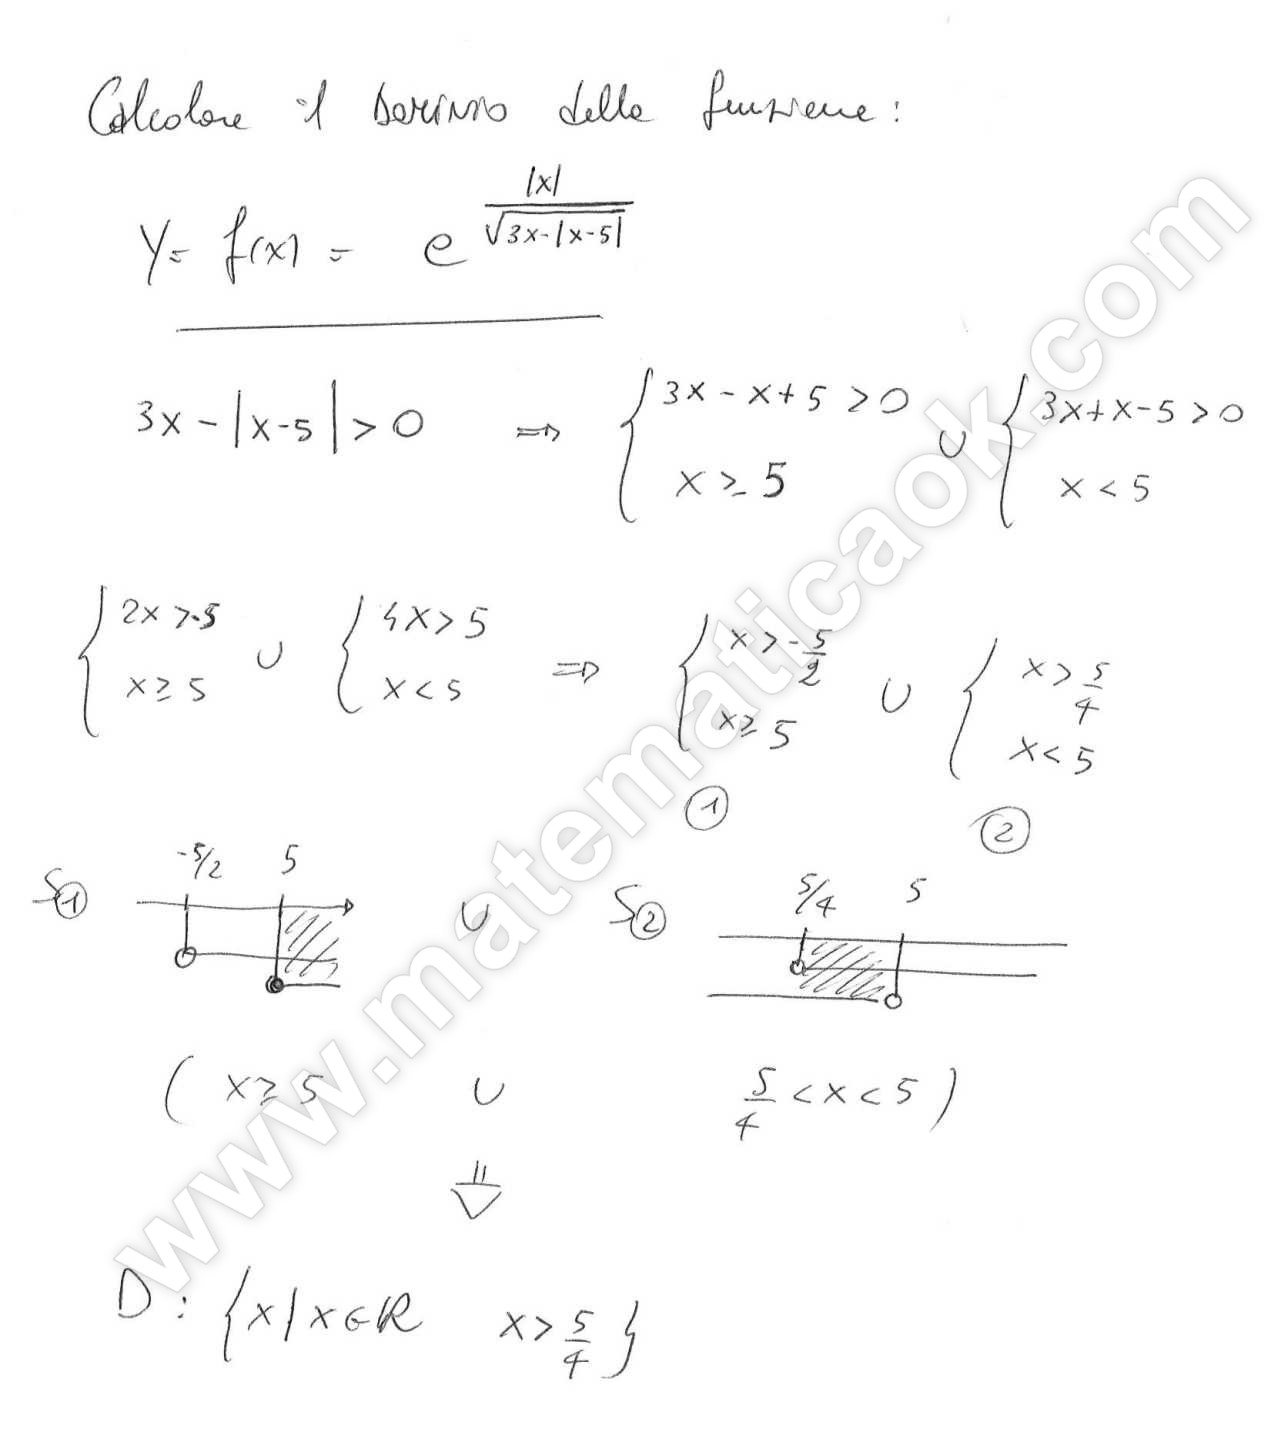 Calcolare il Dominio della funzione:
y = f(x) = e^(|x| / √(3x-|x-5|))
3x-|x-5|>0 ⇒ { 3x-x+5>0 ; x≥5 ∪ { 3x+x-5>0 ; x<5
{ 2x>-5 ; x≥5 ∪ { 4x>5 ; x<5 ⇒ { x>-5/2 ; x≥5 ∪ { x>5/4 ; x<5
① ②
-5/2 5 5/4 5
S① ∪ S②
( x≥5 ∪ 5/4<x<5 )
⇓
D: {x/x∈R x>5/4}
www.matematicaok.com